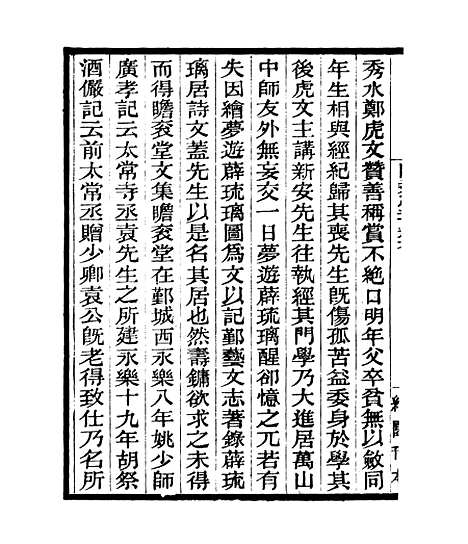 秀水鄭虎文贊善稱賞不絕口明年父卒貧無以斂同
年生相與經紀歸其喪先生既傷孤苦益委身於學其
後虎文主講新安先生往執經其門學乃大進居萬山
中師友外無妄交一日夢遊薜琉璃醒卻憶之兀若有
失因繪夢遊薜琉璃圖爲文以記鄞藝文志著錄薜琉
璃居詩文蓋先生以是名其居也然壽鏞欲求之未得
而得瞻袞堂文集瞻袞堂在鄞城西永樂八年姚少師
廣孝記云太常寺丞袁先生之所建永樂十九年胡祭
酒儼記云前太常丞贈少卿袁公既老得致仕乃名所